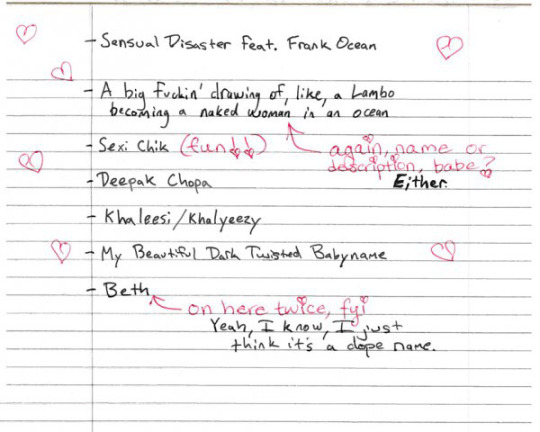 - Sensual Disaster feat. Frank Ocean
- A big fuckin' drawing of, like, a Lambo
becoming a naked woman in an ocean
- Sexi Chik (fun!!)
again, name or
description, babe?
Either.
- Deepak Chopa
- Khaleesi/Khalyeezy
- My Beautiful Dark Twisted Babyname
- Beth
on here twice, fyi
Yeah, I know, I just
think it's a dope name.